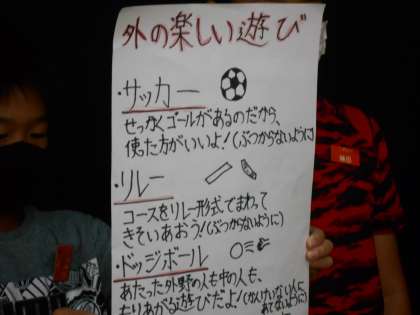 外の楽しい遊び
・サッカー
せっかくゴールがあるのだから、
使った方がいいよ!(ぶつからないように)
・リレー
コースをリレー形式でまわって
きそいあおう!(ぶつからないように)
・ドッジボール
あたった外野の人も中の人も、
もりあがる遊びだよ!(かんけいない人に
あてないように)